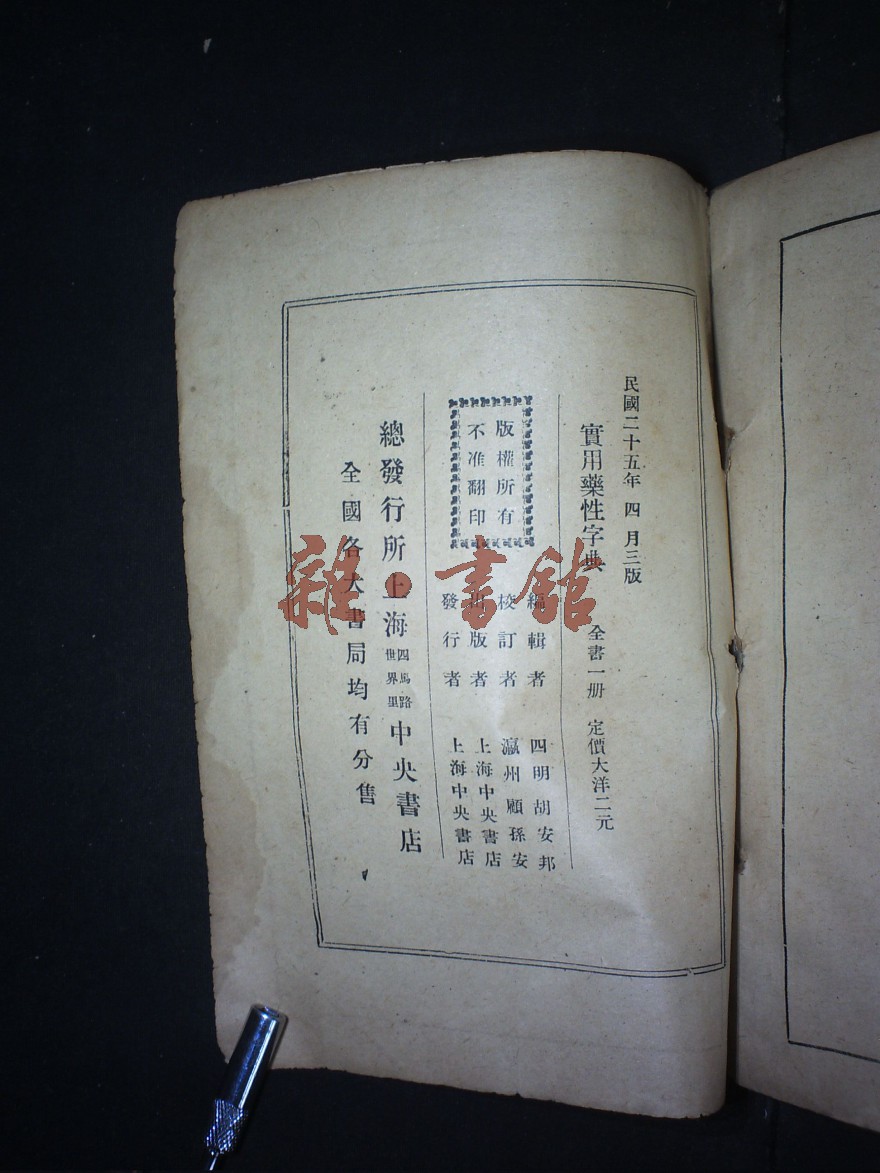 民國二十五年四月三版
實用藥性字典 全書一册 定價大洋二元
版權所有
不准翻印
編輯者 四明胡安邦
校訂者 瀛州顧孫安
出版者 上海中央書店
發行者 上海中央書店
總發行所上海四馬路世界里中央書店
全國各大書局均有分售
雜·書館